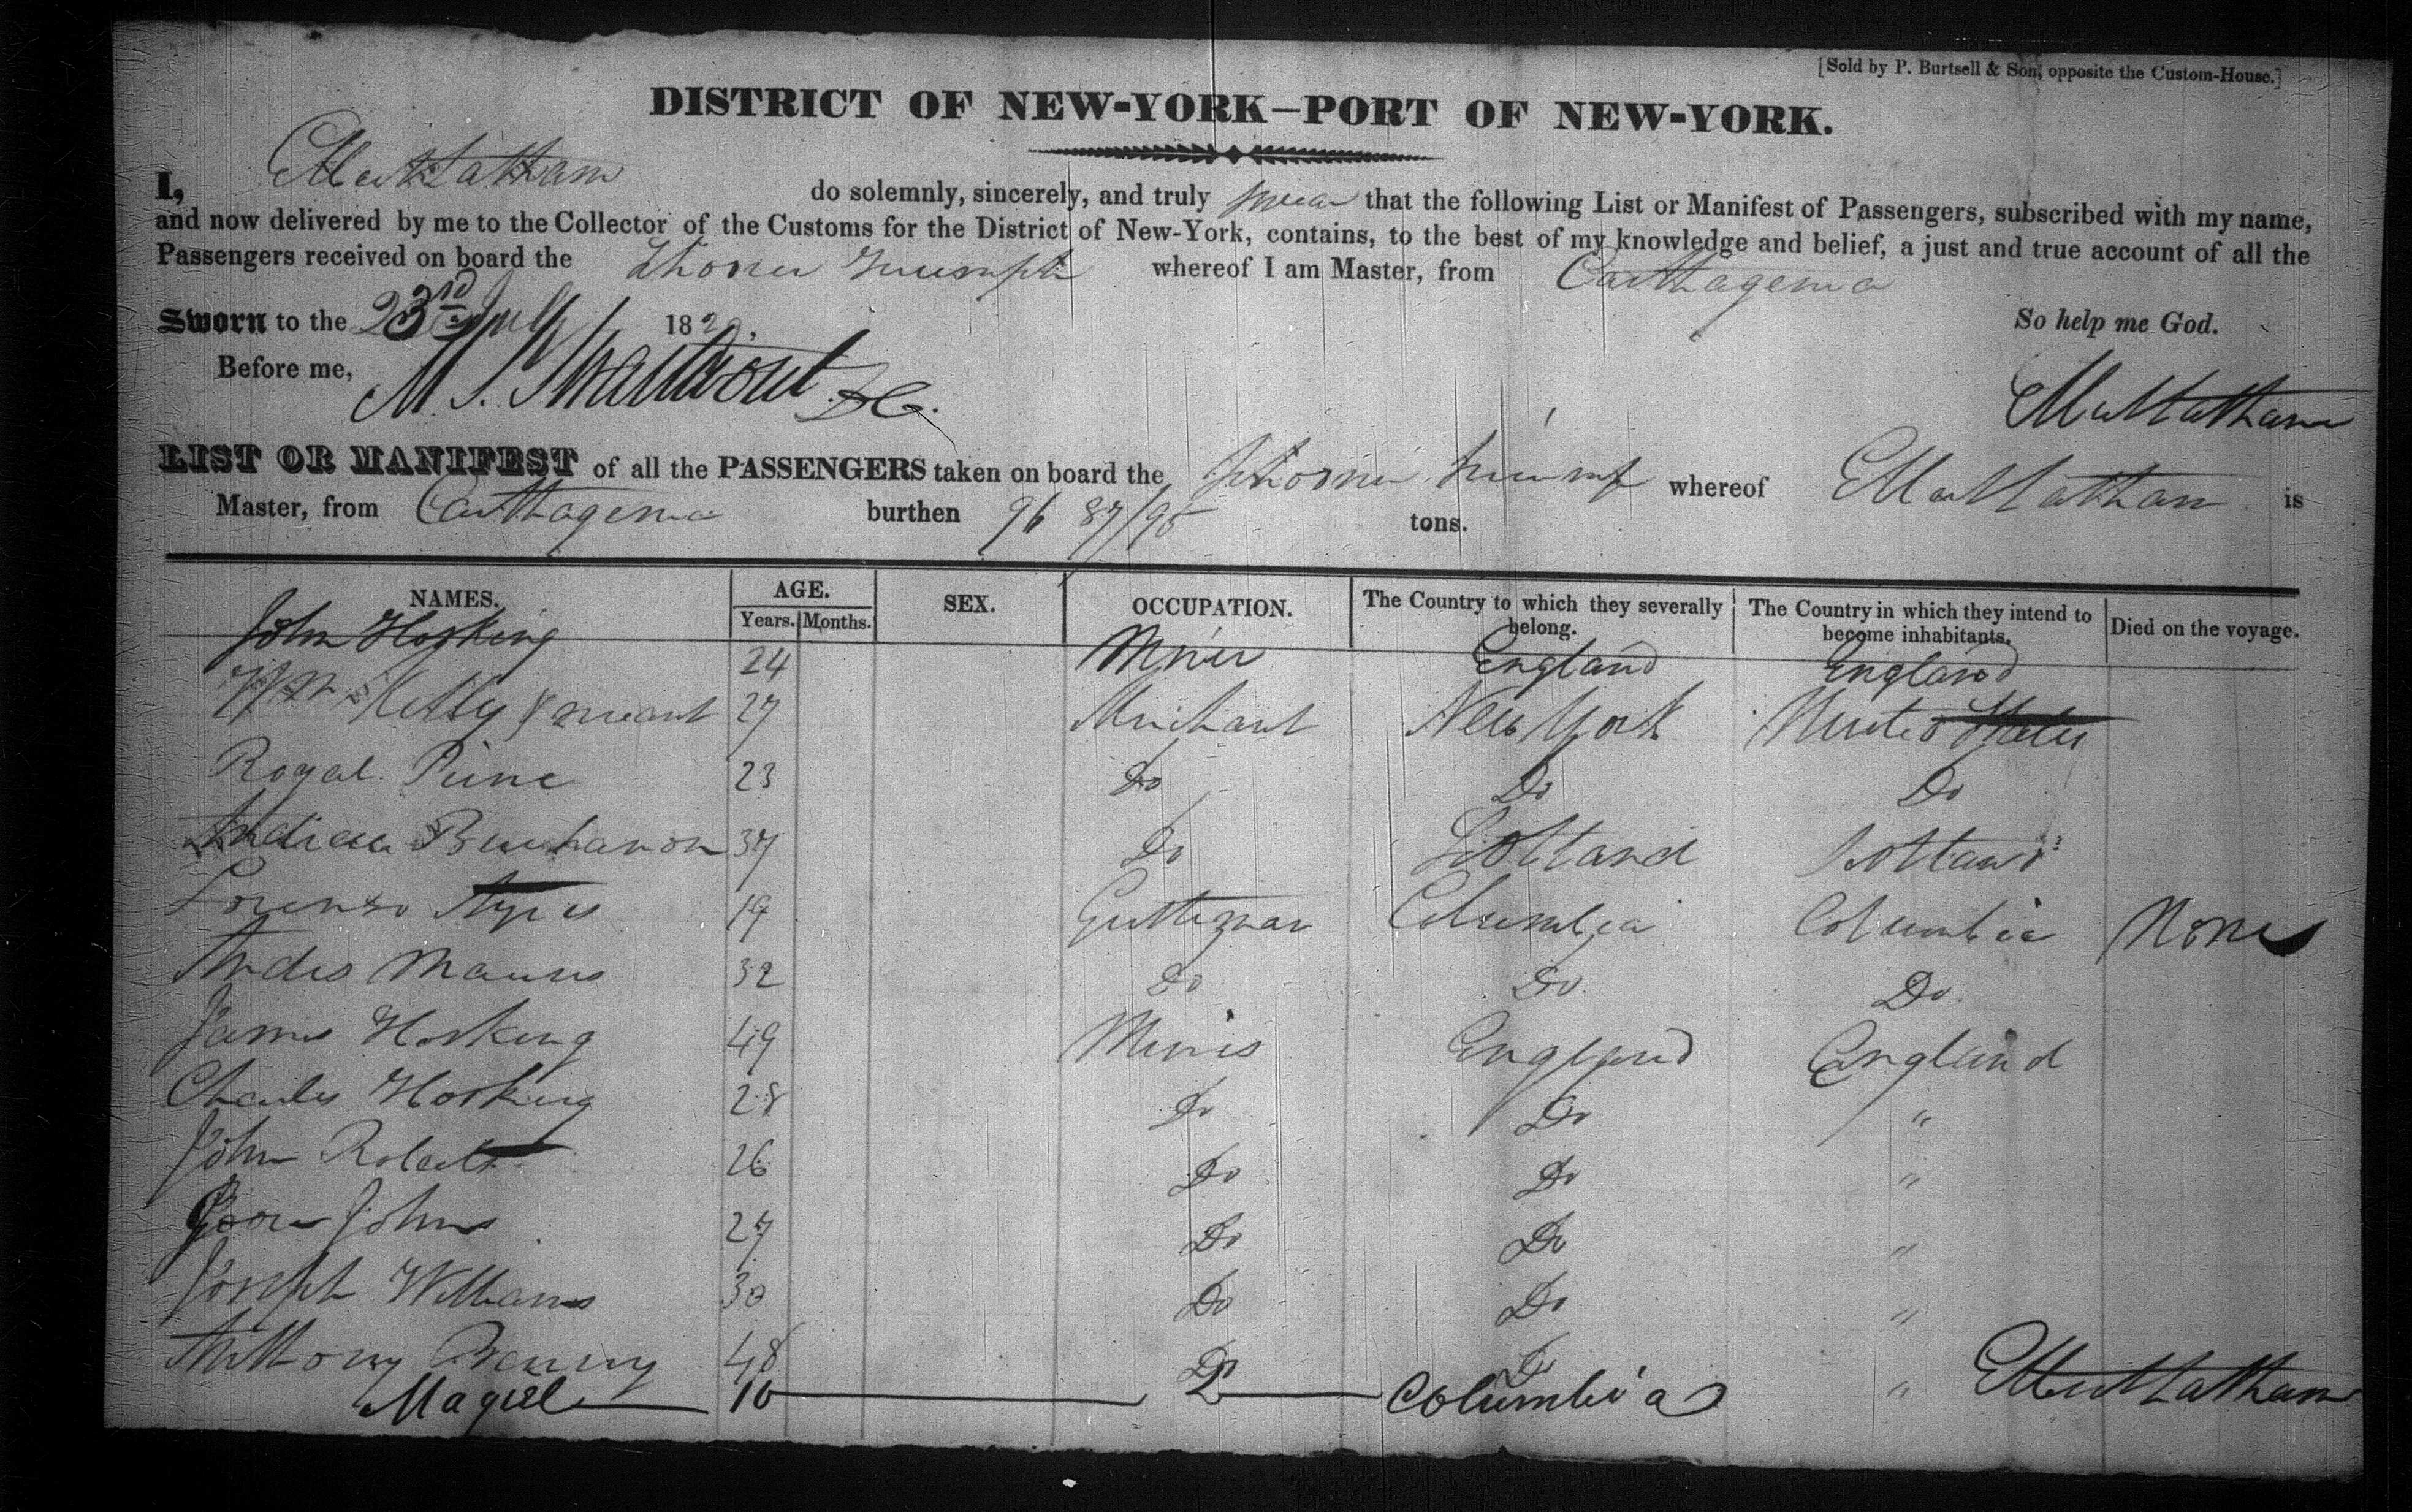 [Sold by P. Burtsell & Son, opposite the Custom-House.]
DISTRICT OF NEW-YORK—PORT OF NEW-YORK.
I, do solemnly, sincerely, and truly swear that the following List or Manifest of Passengers, subscribed with my name,
and now delivered by me to the Collector of the Customs for the District of New-York, contains, to the best of my knowledge and belief, a just and true account of all the
Passengers received on board the whereof I am Master, from Carthagena
Sworn to the 23rd July 182 So help me God.
Before me, M. S. Swartwout
LIST OR MANIFEST of all the PASSENGERS taken on board the whereof is
Master, from Carthagena burthen 96 87/95 tons.
NAMES. AGE. Years. Months. SEX. OCCUPATION. The Country to which they severally belong. The Country in which they intend to become inhabitants. Died on the voyage.
John Hosking 24 Miner England England
Wm Kelly & servant 27 Merchant New York United States
Royal 23 Do Do Do
Buchanon 37 Do Scotland Scotland
Lorenzo 19 Columbia Columbia None
Andes 32 Do Do Do
James Hosking 49 England England
Charles Hosking 28 Do Do "
John Roberts 26 Do Do "
Johns 27 Do Do "
Joseph Williams 30 Do Do "
Anthony 48 Do Do "
10 Columbia